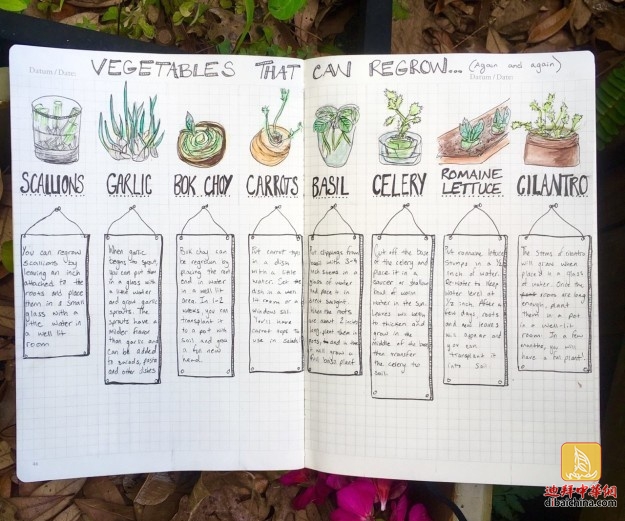 Datum / Date:
VEGETABLES THAT CAN REGROW... (Again and again)
Datum / Date:
SCALLIONS GARLIC BOK CHOY CARROTS BASIL CELERY ROMAINE LETTUCE CILANTRO
You can regrow
scallions by
leaving an inch
attached to the
roots and place
them in a small
glass with a
little water in
a well lit
room
When garlic
begins to sprout,
you can put them
in a glass with
a little water
and grow garlic
sprouts. The
sprouts have a
milder flavor
than garlic and
can be added to
salads, pasta
and other dishes
Bok choy can
be regrown by
placing the root
end in water
in a well lit
area. In 1-2
weeks, you can
transplant it
to a pot with
soil and grow
a new
head.
Put carrot tops
in a dish
with a little
water. Set the
dish in a well
lit room or a
window sill.
You'll have
carrot tops to
use in salads
Put clippings from
basil with 3-4
inch stems in a
glass of water
and place it in
direct sunlight.
When the roots
are about 2 inches
long, plant them in
pots and in time
it will grow a
full basil plant
Cut off the base
of the celery and
place it in a
saucer or shallow
bowl of warm
water in the sun.
Leaves will begin
to thicken and
grow in the
middle of the base
then transfer
the celery to
soil.
Put romaine lettuce
stumps in a 1/2
inch of water.
Re-water to keep
water level at
1/2 inch. After a
few days, roots
and new leaves
will appear and
you can
transplant it
into soil
The stems of cilantro
will grow when
placed in a glass
of water. Once the
roots are long
enough, plant
them in a pot
in a well-lit
room. In a few
months, you will
have a full plant.
迪拜中華網
dibaichina.com